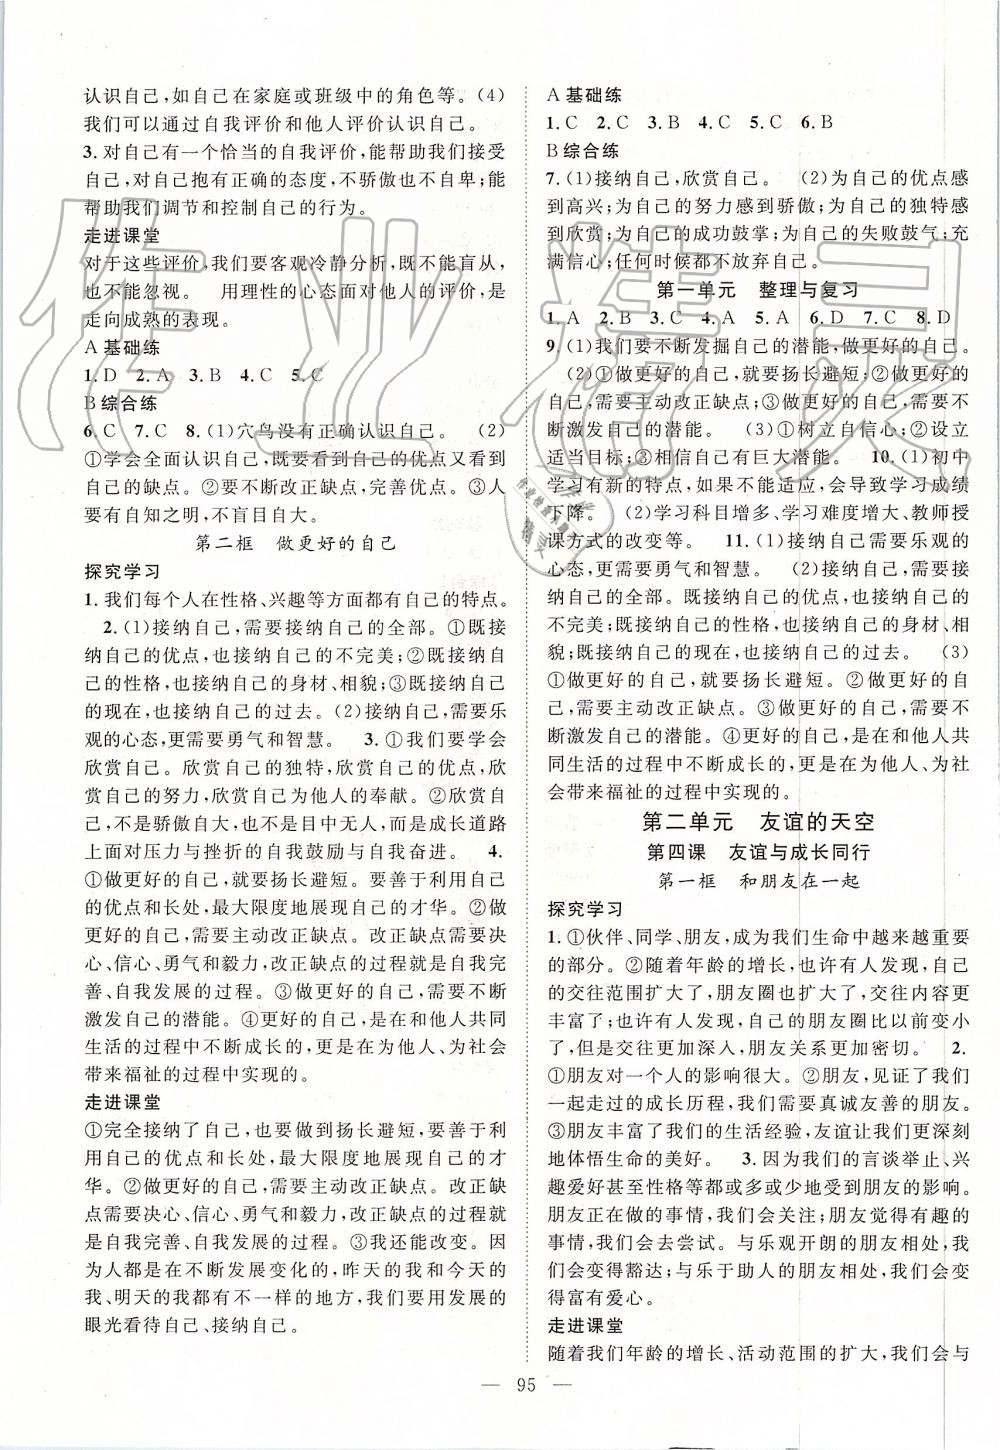 认识自己,如自己在家庭或班级中的角色等。(4)
我们可以通过自我评价和他人评价认识自己。
3.对自己有一个恰当的自我评价,能帮助我们接受
自己,对自己抱有正确的态度,不骄傲也不自卑;能
帮助我们调节和控制自己的行为。
走进课堂
对于这些评价,我们要客观冷静分析,既不能盲从,
也不能忽视。 用理性的心态面对他人的评价,是
走向成熟的表现。
A 基础练
1.D 2.A 3.B 4.C 5.C
B 综合练
6.C 7.C 8.(1)穴鸟没有正确认识自己。 (2)
①学会全面认识自己,既要看到自己的优点又看到
自己的缺点。②要不断改正缺点,完善优点。③人
要有自知之明,不盲目自大。
第二框 做更好的自己
探究学习
1.我们每个人在性格、兴趣等方面都有自己的特点。
2.(1)接纳自己,需要接纳自己的全部。①既接
纳自己的优点,又接纳自己的不完美;②既接纳自
己的性格,也接纳自己的身材、相貌;③既接纳自己
的现在,也接纳自己的过去。(2)接纳自己,需要乐
观的心态,更需要勇气和智慧。 3.①我们要学会
欣赏自己。欣赏自己的独特,不断完善自己;欣赏
自己的努力,欣赏自己为他人的奉献。②欣赏自己,
不是骄傲自大,也不是目中无人,而是成长道路
上面对压力与挫折的自我鼓励与自我奋进。 4.
①做更好的自己,就要扬长避短。要善于利用自己
的优点和长处,最大限度地展现自己的才华。②做
更好的自己,需要主动改正缺点。改正缺点需要决
心、信心、勇气和毅力,改正缺点的过程就是自我完
善、自我发展的过程。③做更好的自己,需要不断
激发自己的潜能。④更好的自己,是在和他人共同
生活的过程中不断成长的,更是在为他人、为社会
带来福祉的过程中实现的。
走进课堂
①完全接纳了自己,也要做到扬长避短,要善于利
用自己的优点和长处,最大限度地展现自己的才
华。②做更好的自己,需要主动改正缺点。改正缺
点需要决心、信心、勇气和毅力,改正缺点的过程就
是自我完善、自我发展的过程。③我还能改变。因
为人人都是在不断发展变化的,昨天的我和今天的
我、明天的我都有不一样的地方,我们要用发展的
眼光看待自己、接纳自己。
A 基础练
1.C 2.C 3.B 4.C 5.C 6.B
B 综合练
7.(1)接纳自己,欣赏自己。 (2)为自己的优点感
到高兴;为自己的努力感到骄傲;为自己的独特感
到欣赏;为自己的成功鼓掌;为自己的失败鼓气;充
满信心;任何时候都不放弃自己。
第一单元 整理与复习
1.A 2.B 3.C 4.A 5.A 6.D 7.C 8.D
9.(1)我们要不断发掘自己的潜能,做更好的自己。
(2)①做更好的自己,就要扬长避短;②做更好的
自己,需要主动改正缺点;③做更好的自己,需要不
断激发自己的潜能。 (3)①树立自信心;②设立
适当目标;③相信自己有巨大潜能。 10.(1)初中
学习有新的特点,如果不能适应,会导致学习成绩
下降。 (2)学习科目增多、学习难度增大、教师授
课方式的改变等。 11.(1)接纳自己需要乐观的
心态,更需要勇气和智慧。 (2)接纳自己,需要接
纳自己的全部。既接纳自己的优点,也接纳自己的
不完美;既接纳自己的性格,也接纳自己的身材、相
貌;既接纳自己的现在,也接纳自己的过去。 (3)
①做更好的自己,就要扬长避短。②做更好的自
己,需要主动改正缺点。③做更好的自己,需要不
断激发自己的潜能。④更好的自己,是在和他人共
同生活的过程中不断成长的,更是在为他人、为社
会带来福祉的过程中实现的。
第二单元 友谊的天空
第四课 友谊与成长同行
第一框 和朋友在一起
探究学习
1.①伙伴、同学、朋友,成为我们生命中越来越重要
的部分。②随着年龄的增长,也许有人发现,自己
的交往范围扩大了,朋友圈也扩大了,交往内容更
丰富了;也许有人发现,自己的朋友圈比以前变小
了,但是交往更加深入,朋友关系更加密切。 2.
①朋友对一个人的影响很大。②朋友,见证了我们
一起走过的成长历程,我们需要真诚友善的朋友。
③朋友丰富了我们的生活经验,友谊让我们更深刻
地体悟生命的美好。 3.我们的言谈举止、兴
趣爱好甚至性格等都或多或少地受到朋友的影响。
朋友正在做的事情,我们会关注;朋友觉得有趣的
事情,我们会去尝试。与乐观开朗的朋友相处,我
们会变得豁达;与乐于助人的朋友相处,我们会变
得富有爱心。
走进课堂
随着我们年龄的增长、活动范围的扩大,我们会与
— 95 —
作业精灵